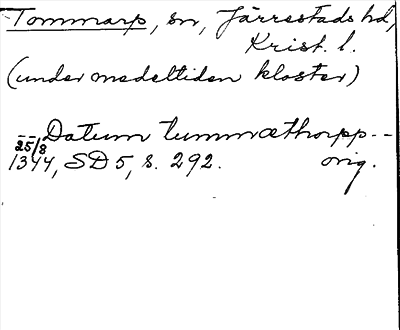 Tommarp, sn, Järrestads hd,
Krist. l.
(under medeltiden kloster)
-- Datum tummæthorpp --
25/8
1344, SD 5, s. 292. orig.